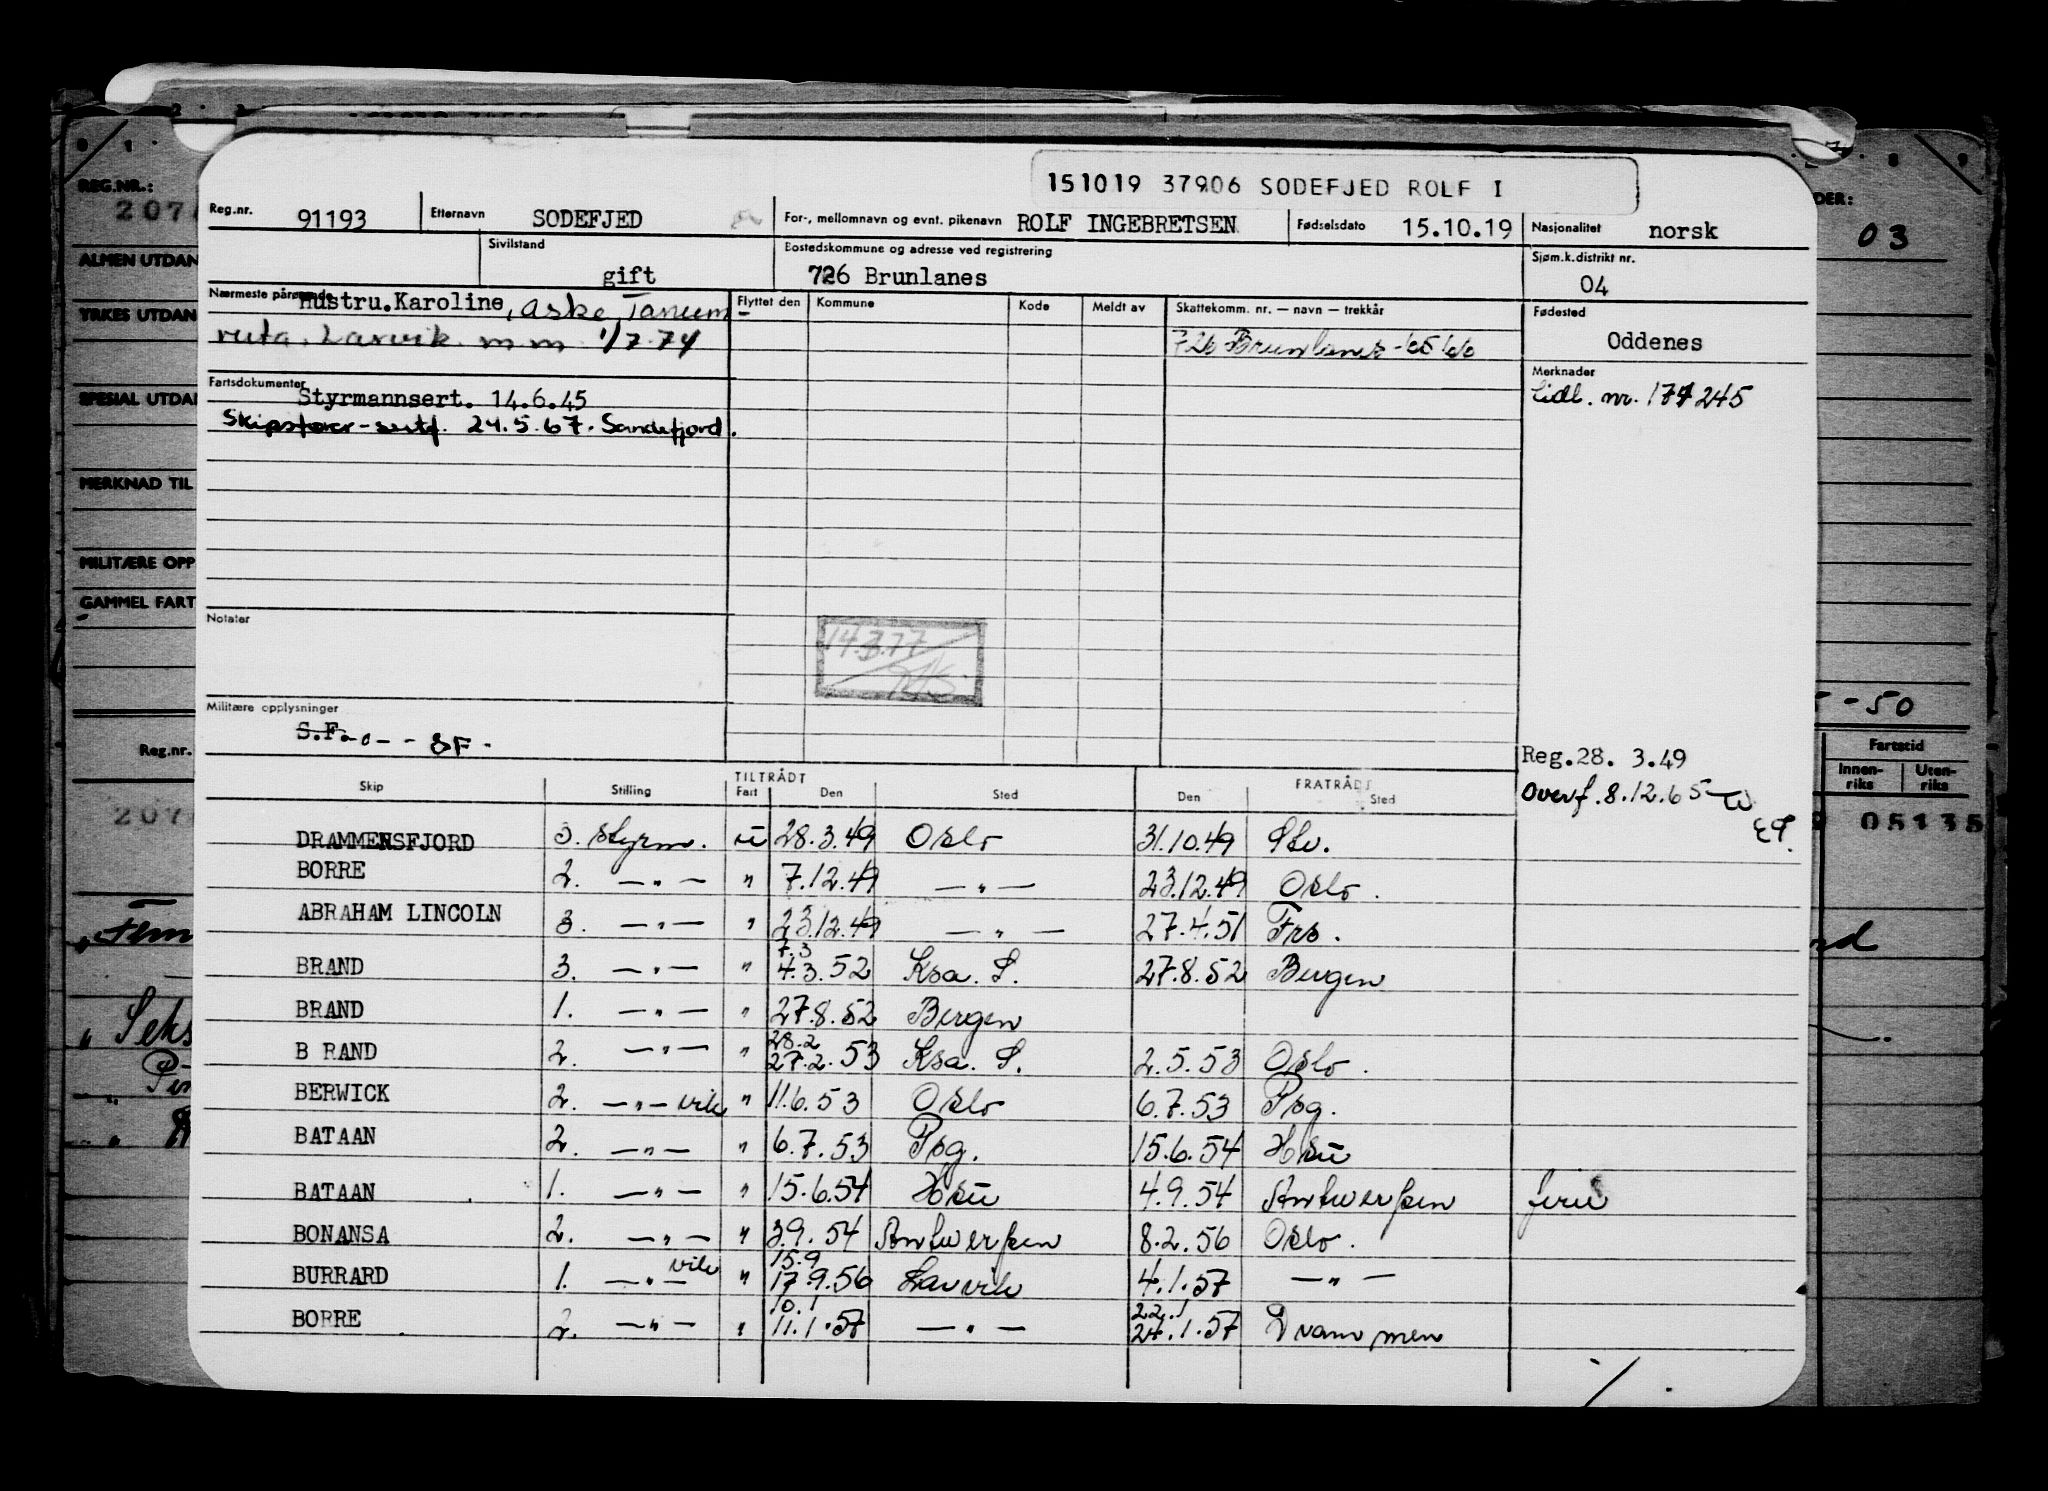 151019 37906 SODEFJED ROLF I
Reg.nr. 91193 Etternavn SODEFJED For-, mellomnavn og evnt. pikenavn ROLF INGEBRETSEN Fødselsdato 15.10.19 Nasjonalitet norsk
Sivilstand gift Bostedskommune og adresse ved registrering 726 Brunlanes Sjøm.k.distrikt nr. 04
Nærmeste pårørende Hustru.Karoline, Aske, Tanum
ruta, Larvik m m 1/7.74
Flyttet den Kommune Kode Meldt av Skattekomm. nr. — navn — trekkår
726 Brunlanes -65 66
Fødested Oddenes
Fartsdokumenter
Styrmannsert. 14.6.45
Skipsfører-sertf. 24.5.67. Sandefjord.
Merknader
Lidl. nr. 174245
Notater
14.3.77
Militære opplysninger
S.F. -o- - SF.
Reg.28. 3.49
Overf. 8.12.65
Skip Stilling TILTRÅDT Fart Den Sted FRATRÅDT Den Sted
DRAMMENSFJORD 3. styrm. u 28.3.49 Oslo 31.10.49 Stv.
BORRE 2. — " — " 7.12.49 — " — 23.12.49 Oslo.
ABRAHAM LINCOLN 3. — " — " 23.12.49 — " — 27.4.51 Frs.
BRAND 3. — " — " 7.3 4.3.52 Ksa. S. 27.8.52 Bergen
BRAND 1. — " — " 27.8.52 Bergen
B RAND 2. — " — " 28.2 27.2.53 Ksa. S. 2.5.53 Oslo.
BERWICK 2. — " — vik " 11.6.53 Oslo 6.7.53 Psg.
BATAAN 2. — " — " 6.7.53 Psg. 15.6.54 Hsü
BATAAN 1. — " — " 15.6.54 Hsü 4.9.54 Antwerpen ferie
BONANSA 2. — " — " 3.9.54 Antwerpen 8.2.56 Oslo.
BURRARD 1. — " — vik " 15.9 17.9.56 Larvik 4.1.57 — " —
BORRE 2. — " — " 10.1 11.1.57 — " — 22.1 24.1.57 Drammen
REG.NR.:
207
ALMEN UTDAN
YRKES UTDAN
SPESIAL UTDA
MERKNAD TIL
MILITÆRE OPP
GAMMEL FART
Reg.nr.
207
DER:
03
-50
Fartstid
Innen-riks Uten-riks
05135